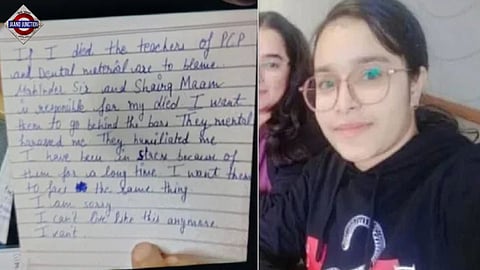 GRAND JUNCTION
If I died the teachers of PCP
and Dental material are to blame.
Mahinder Sir and Shairg Maam
is responsible for my died I want
them to go behind the bars They mental
harassed me. They humiliated me
I have been in stress because of
them for a long time. I want them
to face the same thing
I am sorry
I can't live like this anymore
I can't